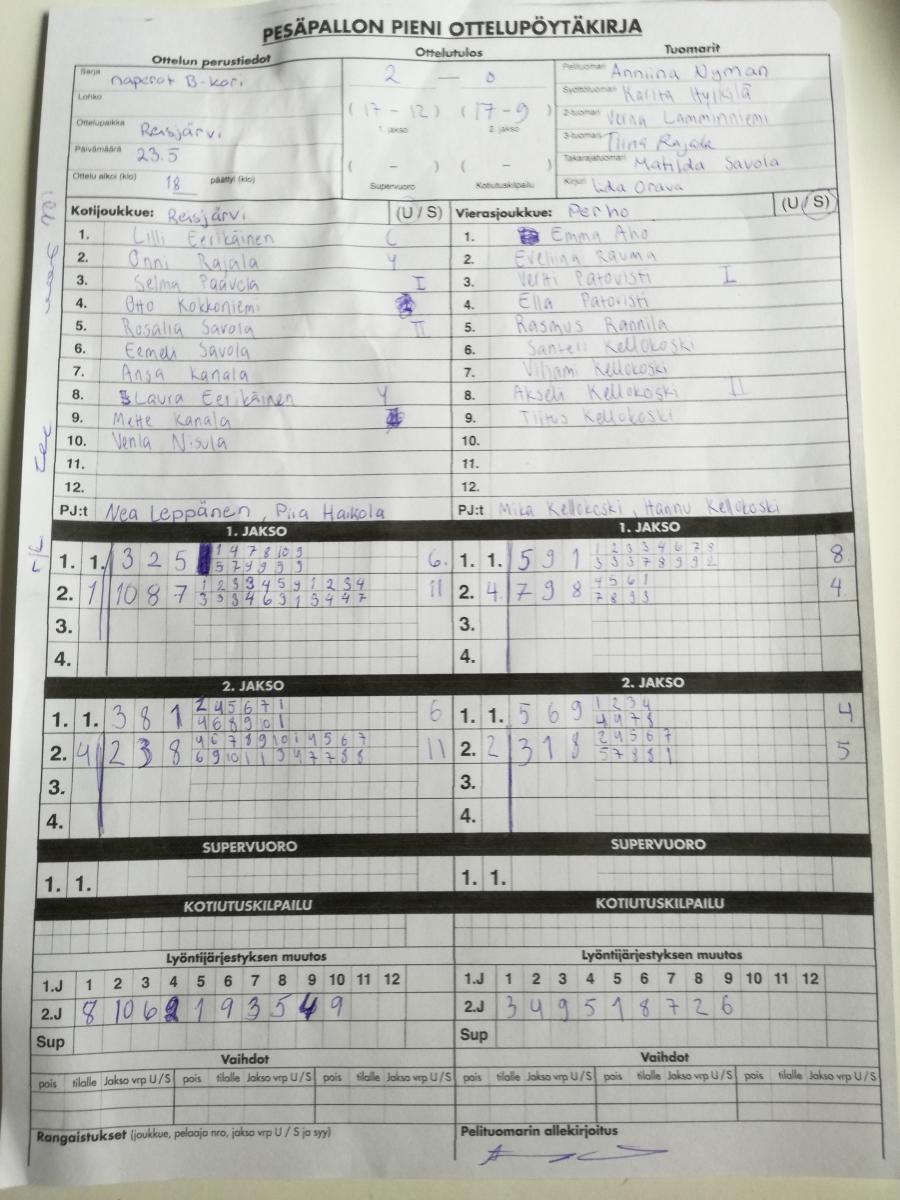 PESÄPALLON PIENI OTTELUPÖYTÄKIRJA
Ottelun perustiedot Ottelutulos Tuomarit
Sarja naperot B-kori
Lohko
Ottelupaikka Reisjärvi
Päivämäärä 23.5
Ottelu alkoi (klo) 18 päättyi (klo)
2 — 0
( 17 - 12 ) ( 17 - 9 )
1. jakso 2. jakso
( - ) ( - )
Supervuoro Kotiutuskilpailu
Pelituomari Anniina Nyman
Syöttötuomari Karita
2-tuomari Verna Lamminniemi
3-tuomari Tiina Rajala
Takarajatuomari Matilda Savola
Kirjuri Iida Orava
Kotijoukkue: Reisjärvi (U / S)
1. Lilli Eerikäinen C
2. Onni Rajala Y
3. Selma Paavola I
4. Otto Kokkoniemi
5. Rosalia Savola II
6. Eemeli Savola
7. Ansa Kanala
8. Laura Eerikäinen Y
9. Mette Kanala
10. Venla Nisula
11.
12.
PJ:t Nea Leppänen, Piia Haikola
Vierasjoukkue: Perho (U / S)
1. Emma Aho
2. Eveliina Rauma
3. Vertti Patovisti I
4. Ella Patovisti
5. Rasmus Rannila
6. Santeri Kellokoski
7. Viljami Kellokoski
8. Akseli Kellokoski II
9. Tiitus Kellokoski
10.
11.
12.
PJ:t Mika Kellokoski, Hannu Kellokoski
1. JAKSO
1. 1. 3 2 5 1 4 7 8 10 9 6
5 7 9 9 9 9
2. 1 10 8 7 1 2 3 3 4 5 9 1 2 3 4 11
3 3 3 4 6 3 1 3 4 4 7
3.
4.
1. JAKSO
1. 1. 5 9 1 1 2 3 3 4 6 7 8 8
3 3 3 7 8 9 9 2
2. 4 7 9 8 4 5 6 1 4
7 8 9 3
3.
4.
2. JAKSO
1. 1. 3 8 1 2 4 5 6 7 1 6
4 6 8 9 10 1
2. 4 2 3 8 4 6 7 8 9 10 1 4 5 6 7 11
6 9 10 1 1 3 4 7 7 8 8
3.
4.
2. JAKSO
1. 1. 5 6 9 1 2 3 4 4
4 4 7 8
2. 2 3 1 8 2 4 5 6 7 5
5 7 8 8 1
3.
4.
SUPERVUORO SUPERVUORO
1. 1. 1. 1.
KOTIUTUSKILPAILU KOTIUTUSKILPAILU
Lyöntijärjestyksen muutos Lyöntijärjestyksen muutos
1.J 1 2 3 4 5 6 7 8 9 10 11 12 1.J 1 2 3 4 5 6 7 8 9 10 11 12
2.J 8 10 6 2 1 9 3 5 4 9 2.J 3 4 9 5 1 8 7 2 6
Sup Sup
Vaihdot Vaihdot
pois tilalle Jakso vrp U / S pois tilalle Jakso vrp U / S pois tilalle Jakso vrp U / S pois tilalle Jakso vrp U / S pois tilalle Jakso vrp U / S pois tilalle Jakso vrp U / S
Rangaistukset (joukkue, pelaaja nro, jakso vrp U / S ja syy) Pelituomarin allekirjoitus